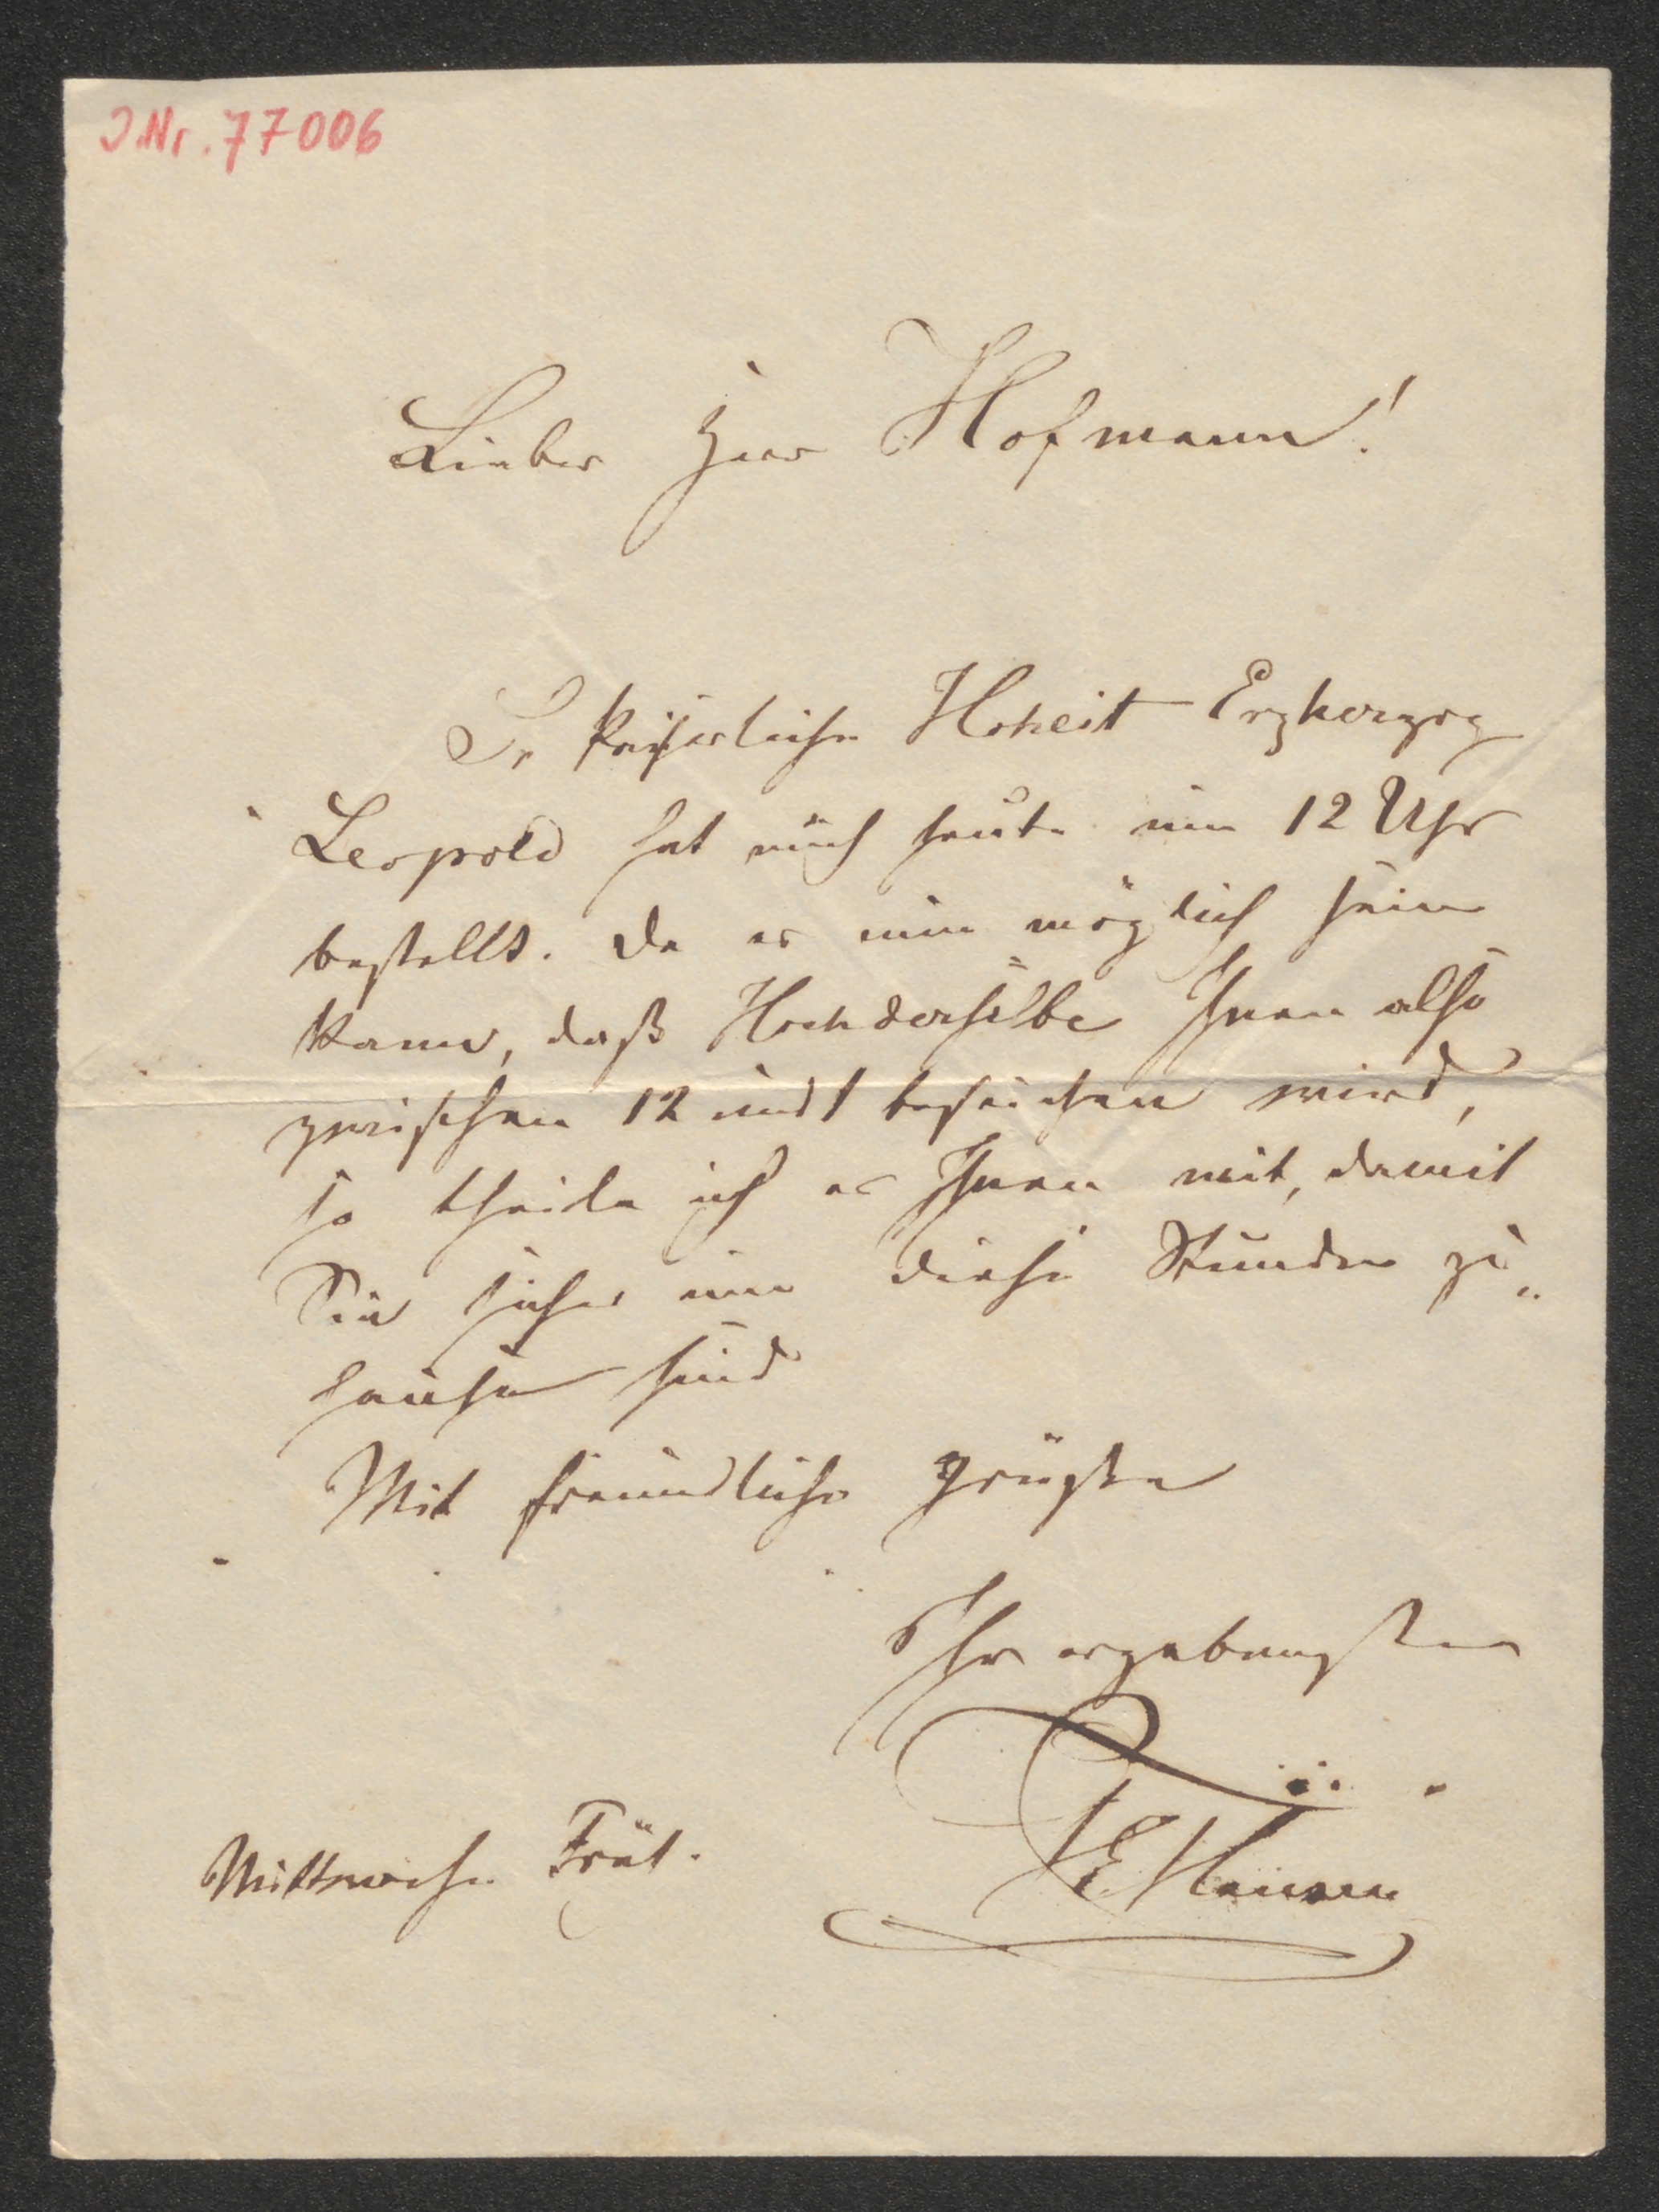 J.Nr. 77006
Lieber Herr Hofmann!
Sr kaiserliche Hoheit Erzherzog
Leopold hat mich heute um 12 Uhr
bestellt. Da es nun möglich sein
kann, daß Hochderselbe Ihnen also
zwischen 12 und 1 besuchen wird,
so theile ich es Ihnen mit, damit
Sie sicher um diese Stunde zu„
hause sind
Mit freundliche grüßen
Ihr ergebenster
Hansen
Mittwoche Früh.